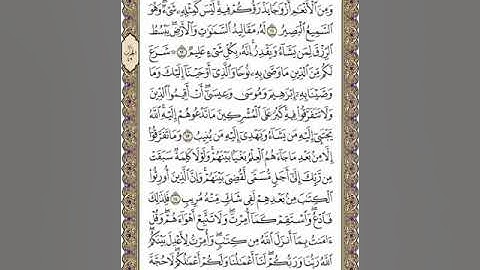 وَمِنَ ٱلْأَنْعَـٰمِ أَزْوَٰجًا يَذْرَؤُكُمْ فِيهِ لَيْسَ كَمِثْلِهِۦ شَىْءٌ وَهُوَ
ٱلسَّمِيعُ ٱلْبَصِيرُ ۝١١ لَهُۥ مَقَالِيدُ ٱلسَّمَـٰوَٰتِ وَٱلْأَرْضِ يَبْسُطُ
ٱلرِّزْقَ لِمَن يَشَآءُ وَيَقْدِرُ إِنَّهُۥ بِكُلِّ شَىْءٍ عَلِيمٌ ۝١٢ ۞ شَرَعَ
لَكُم مِّنَ ٱلدِّينِ مَا وَصَّىٰ بِهِۦ نُوحًا وَٱلَّذِىٓ أَوْحَيْنَآ إِلَيْكَ وَمَا
وَصَّيْنَا بِهِۦٓ إِبْرَٰهِيمَ وَمُوسَىٰ وَعِيسَىٰٓ أَنْ أَقِيمُوا۟ ٱلدِّينَ
وَلَا تَتَفَرَّقُوا۟ فِيهِ كَبُرَ عَلَى ٱلْمُشْرِكِينَ مَا تَدْعُوهُمْ إِلَيْهِ ٱللَّهُ
يَجْتَبِىٓ إِلَيْهِ مَن يَشَآءُ وَيَهْدِىٓ إِلَيْهِ مَن يُنِيبُ ۝١٣ وَمَا تَفَرَّقُوٓا۟
إِلَّا مِنۢ بَعْدِ مَا جَآءَهُمُ ٱلْعِلْمُ بَغْيًۢا بَيْنَهُمْ وَلَوْلَا كَلِمَةٌ سَبَقَتْ
مِن رَّبِّكَ إِلَىٰٓ أَجَلٍ مُّسَمًّى لَّقُضِىَ بَيْنَهُمْ وَإِنَّ ٱلَّذِينَ أُورِثُوا۟
ٱلْكِتَـٰبَ مِنۢ بَعْدِهِمْ لَفِى شَكٍّ مِّنْهُ مُرِيبٍ ۝١٤ فَلِذَٰلِكَ
فَٱدْعُ وَٱسْتَقِمْ كَمَآ أُمِرْتَ وَلَا تَتَّبِعْ أَهْوَآءَهُمْ وَقُلْ
ءَامَنتُ بِمَآ أَنزَلَ ٱللَّهُ مِن كِتَـٰبٍ وَأُمِرْتُ لِأَعْدِلَ بَيْنَكُمُ
ٱللَّهُ رَبُّنَا وَرَبُّكُمْ لَنَآ أَعْمَـٰلُنَا وَلَكُمْ أَعْمَـٰلُكُمْ لَا حُجَّةَ